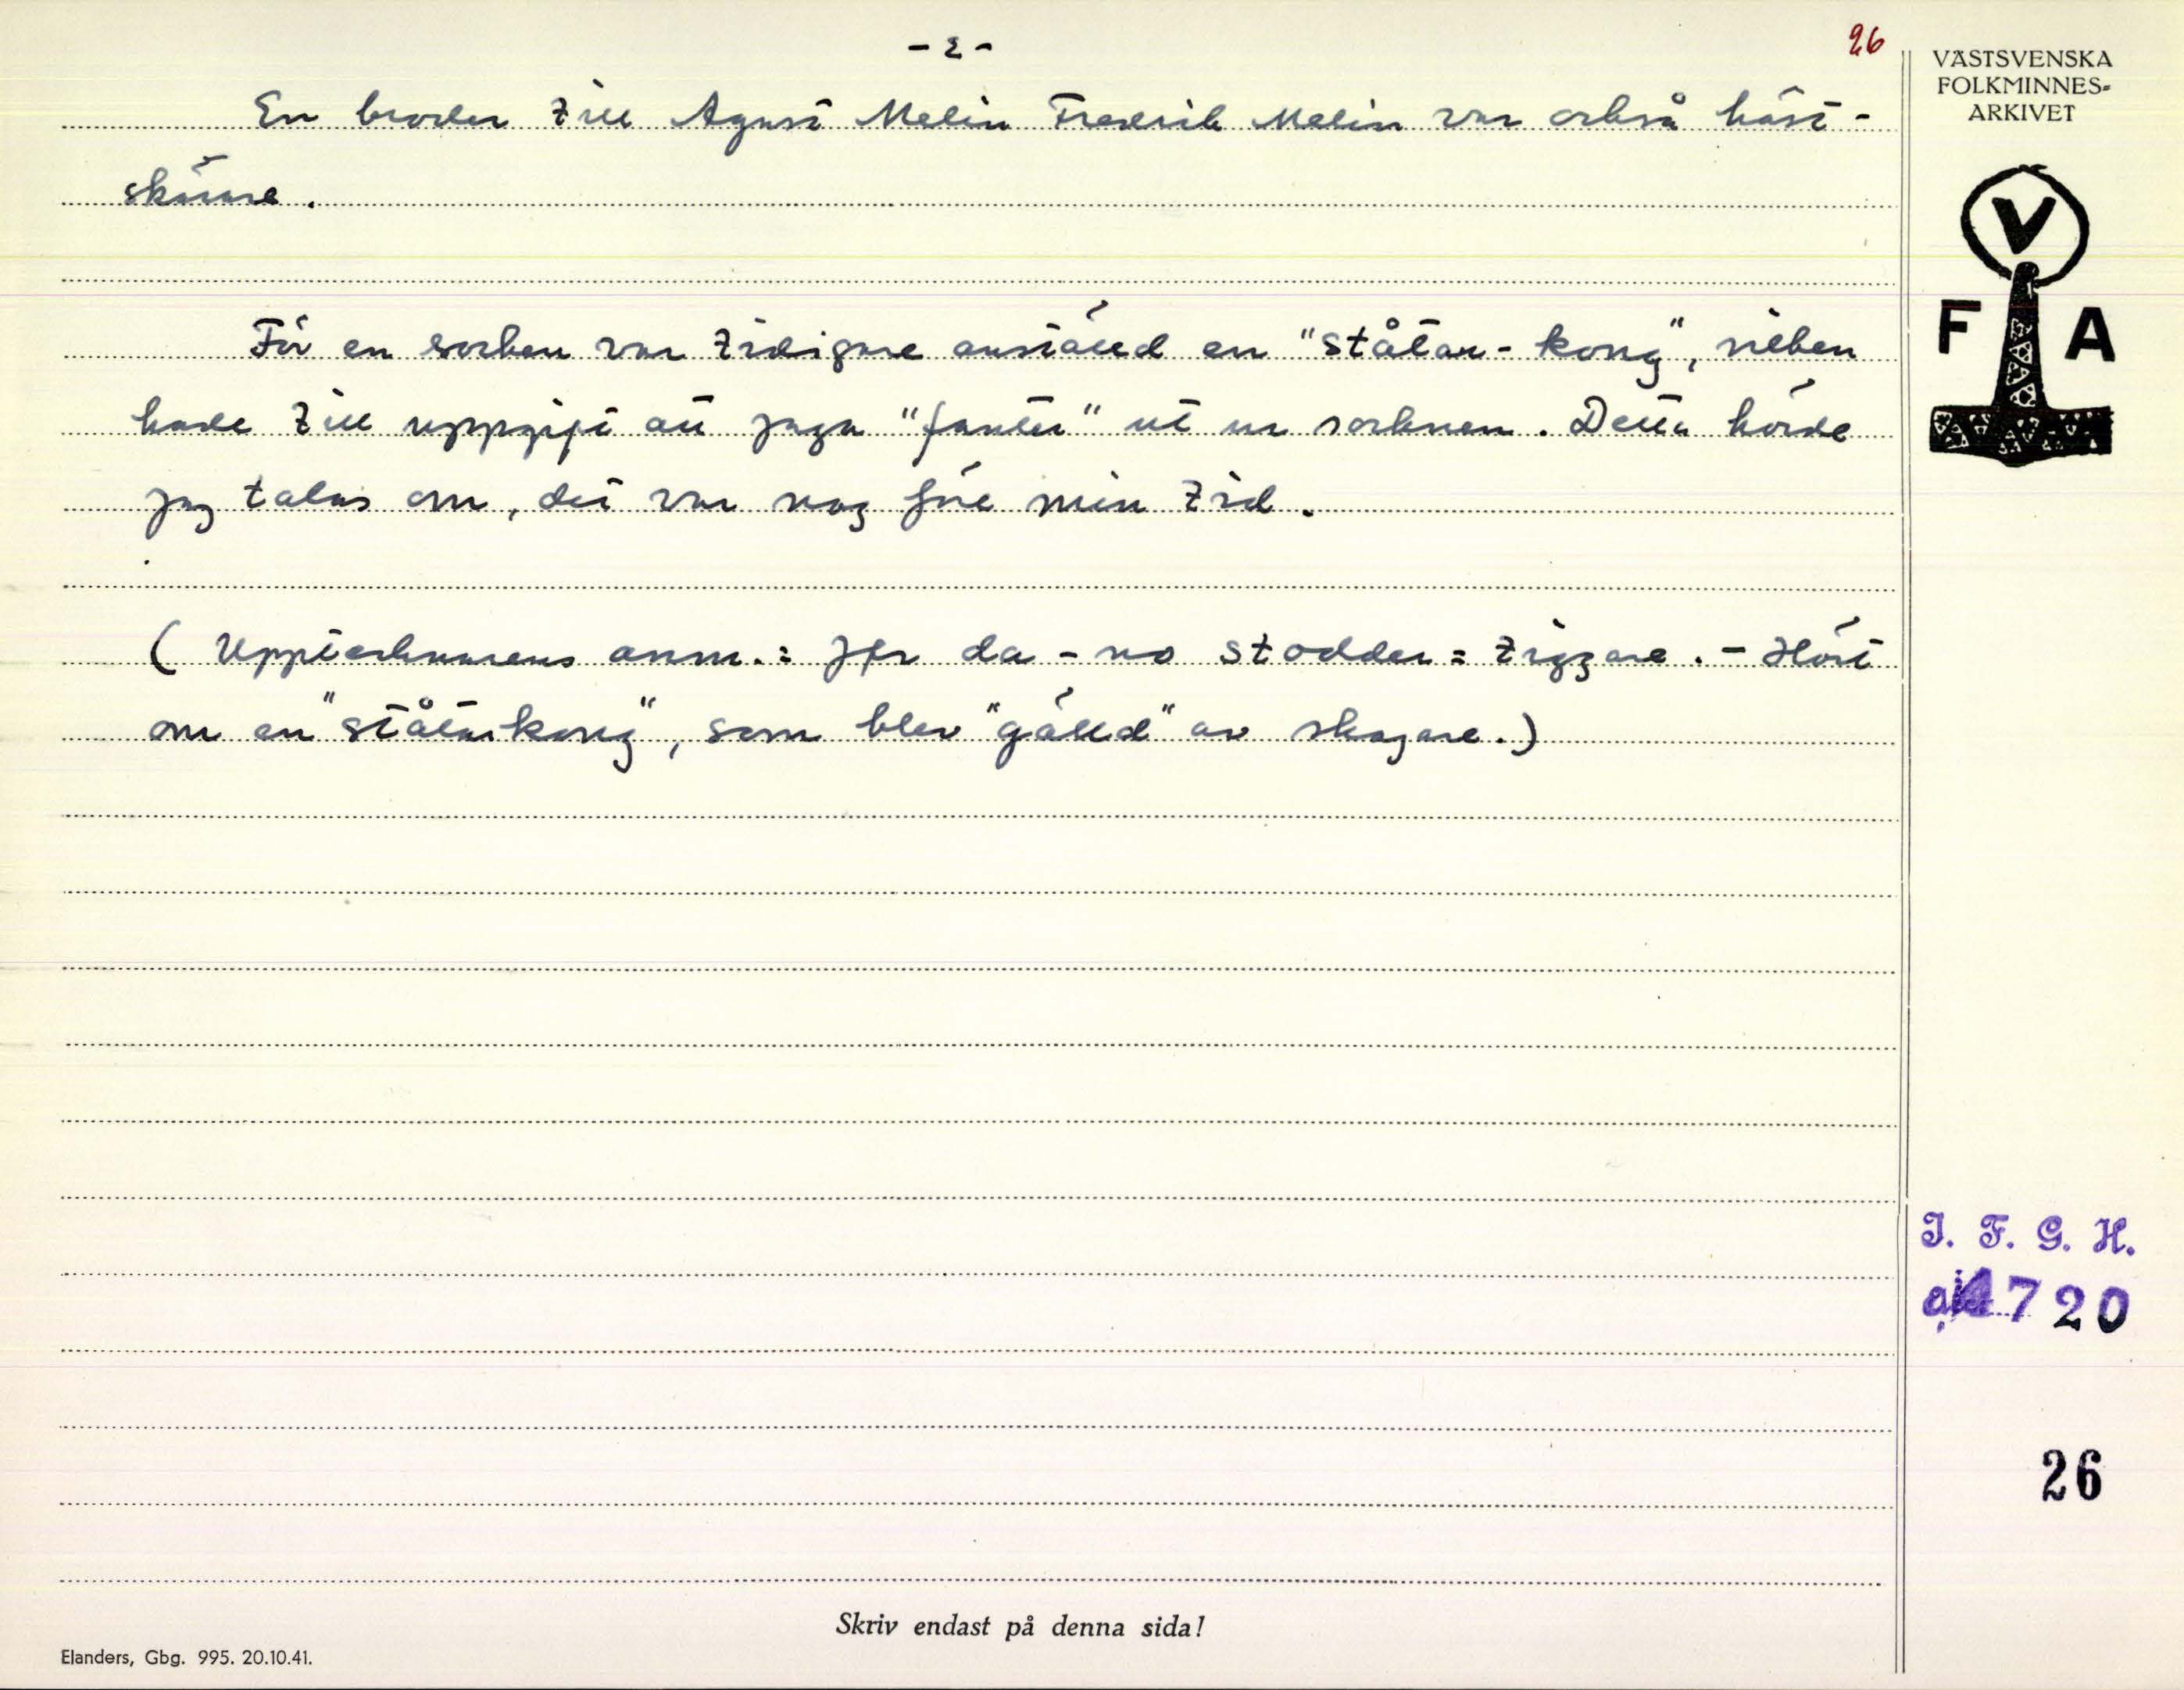 - 2 -
26
En broder till Agust Melin Fredrik Melin var också häst-
skärare.
För en socken var tidigare anställd en "ståtar-kong", vilken
hade till uppgift att jaga "fanter" ut ur socknen. Detta hörde
jag talas om, det var nog före min tid.
(Upptecknarens anm.: Jfr da-no stodder = tiggare. - Hört
om en "ståtarkong", som blev "gälld" av skojare.)
VÄSTSVENSKA
FOLKMINNES-
ARKIVET
V
F A
I. F. G. H.
720
26
Skriv endast på denna sida!
Elanders, Gbg. 995. 20.10.41.